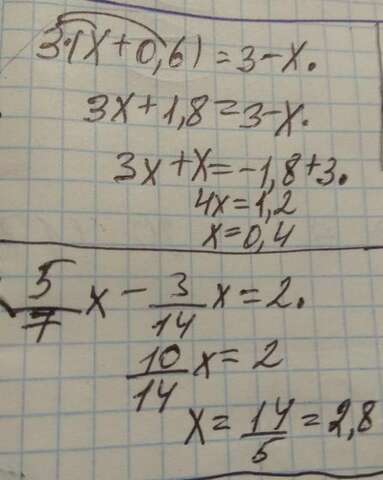 3·(x+0,6)=3-x.
3x+1,8=3-x.
3x+x=-1,8+3.
4x=1,2
x=0,4
5/7 x - 3/14 x = 2.
10/14 x = 2
x = 14/5 = 2,8